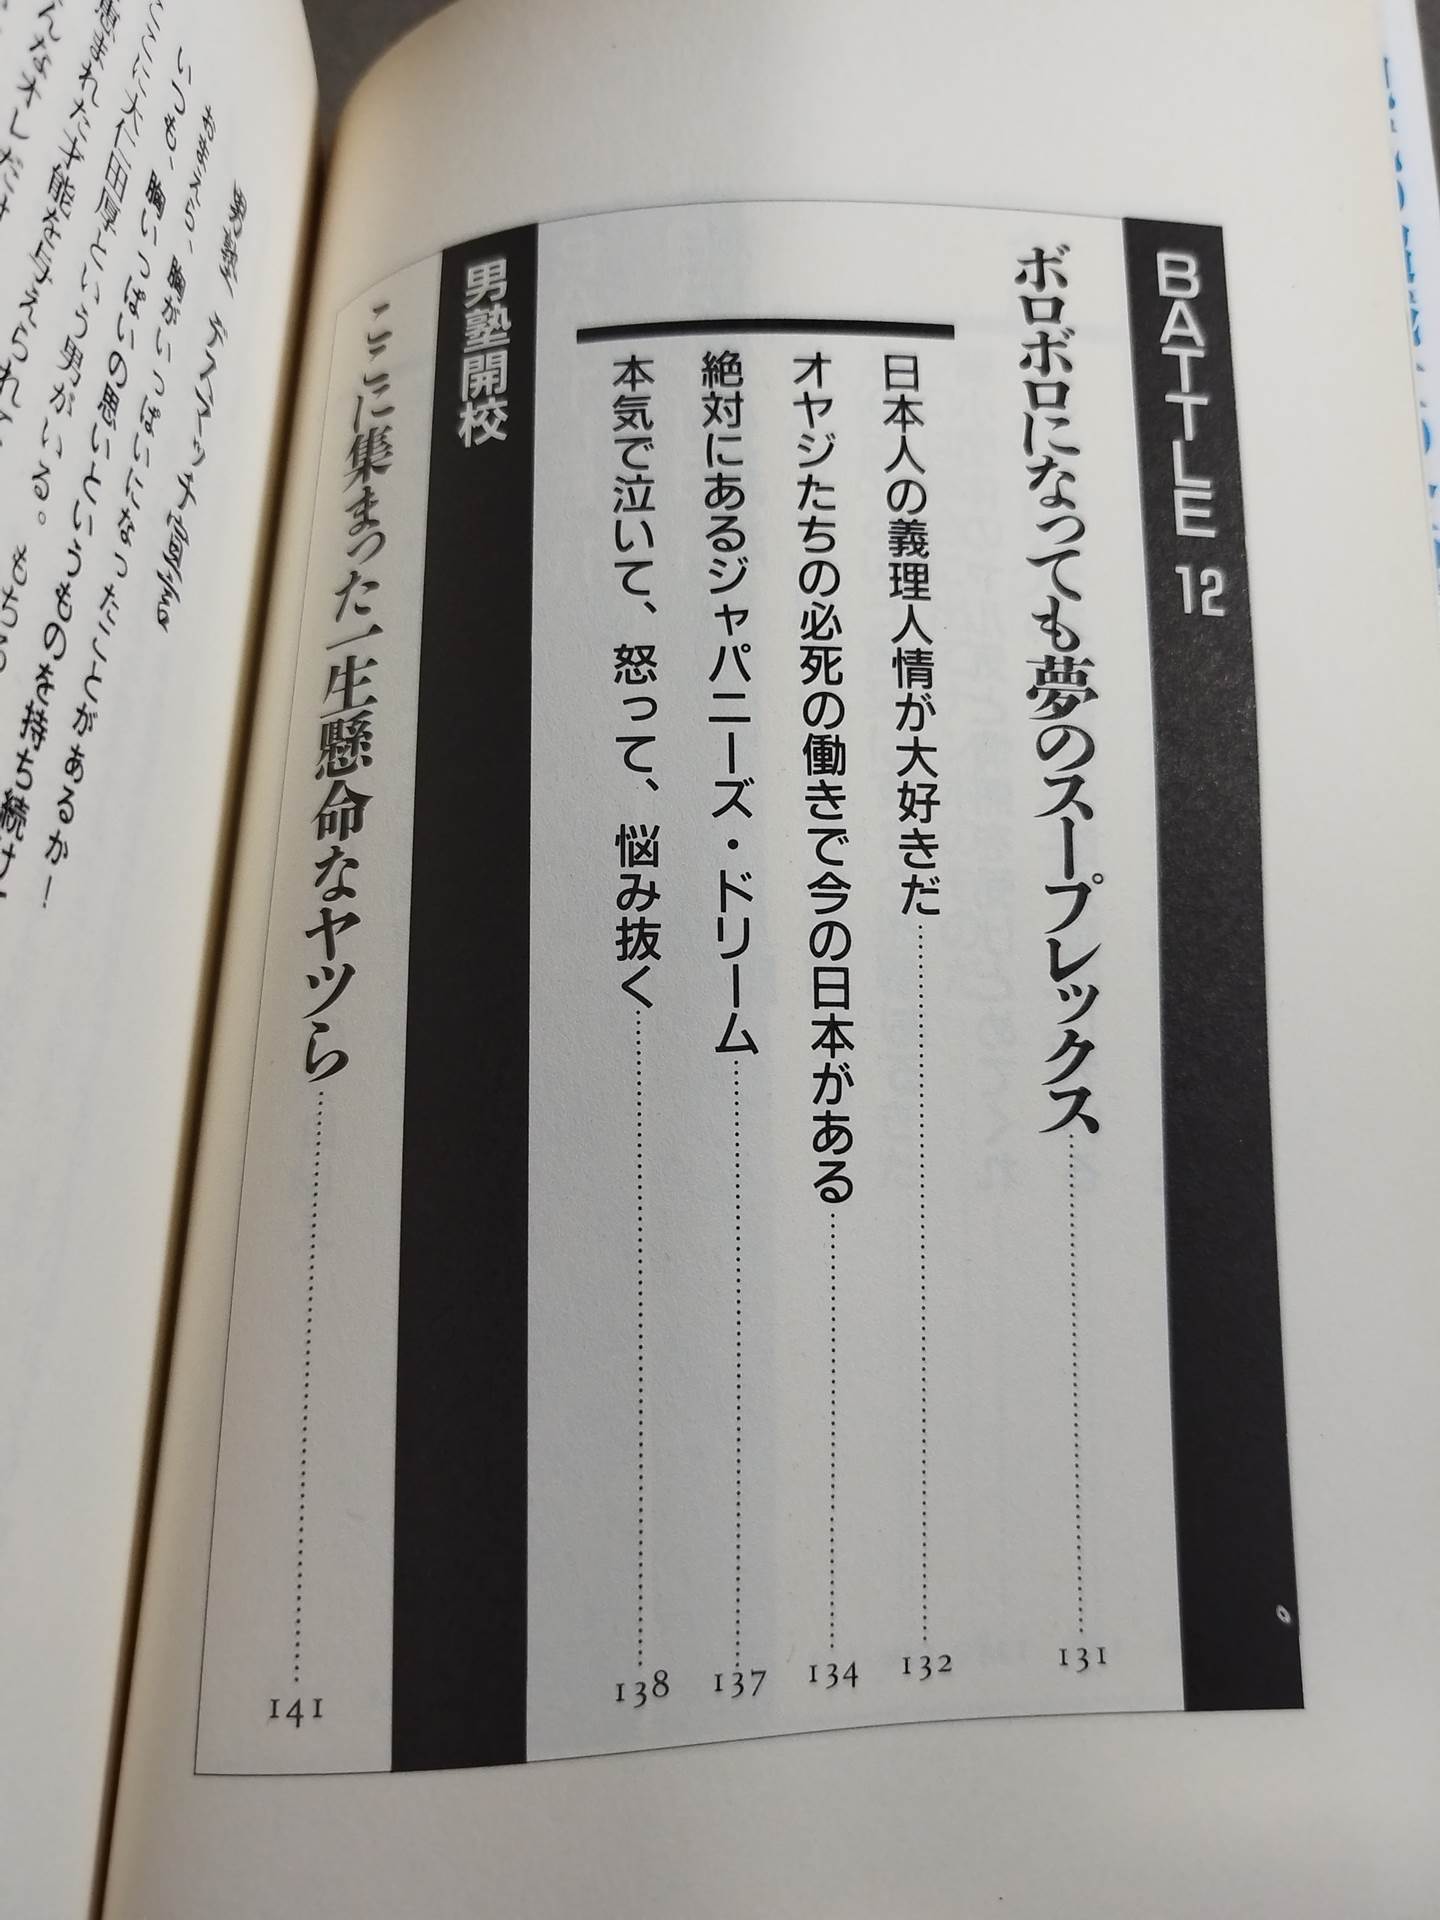 BATTLE 12
ボロボロになっても夢のスープレックス 131
日本人の義理人情が大好きだ 132
オヤジたちの必死の働きで今の日本がある 134
絶対にあるジャパニーズ・ドリーム 137
本気で泣いて、怒って、悩み抜く 138
男塾開校
ここに集まった一生懸命なヤツら 141
男塾 デスマッチ宣言
おまえら、胸がいっぱいになったことがあるか!
いつも、胸いっぱいの思いというものを持ち続け
ここに大仁田厚という男がいる。もちろ
まれた才能を与えられ
んなオレだけ